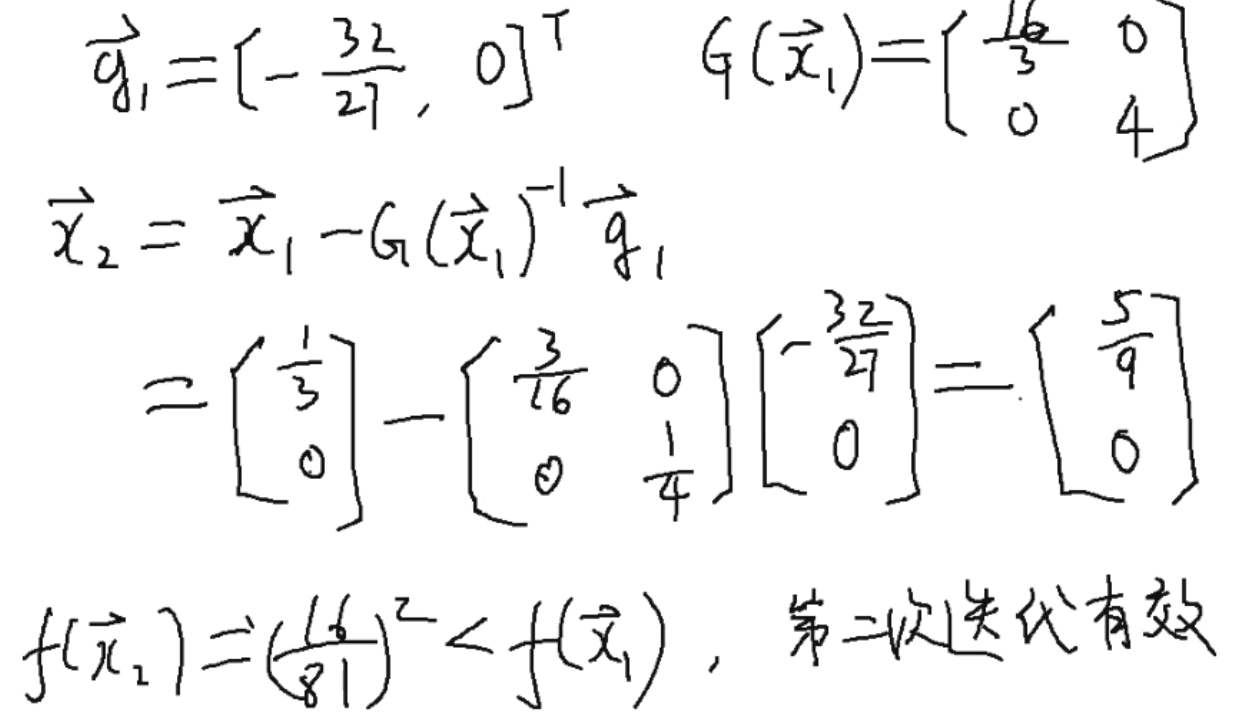 $\vec{g}_1 = [-\frac{32}{27}, 0]^T \quad G(\vec{x}_1) = \begin{bmatrix} \frac{16}{3} & 0 \\ 0 & 4 \end{bmatrix}$
$\vec{x}_2 = \vec{x}_1 - G(\vec{x}_1)^{-1} \vec{g}_1$
$= \begin{bmatrix} \frac{1}{3} \\ 0 \end{bmatrix} - \begin{bmatrix} \frac{3}{16} & 0 \\ 0 & \frac{1}{4} \end{bmatrix} \begin{bmatrix} -\frac{32}{27} \\ 0 \end{bmatrix} = \begin{bmatrix} \frac{5}{9} \\ 0 \end{bmatrix}$
$f(\vec{x}_2) = (\frac{16}{81})^2 < f(\vec{x}_1)$, 第二次迭代有效